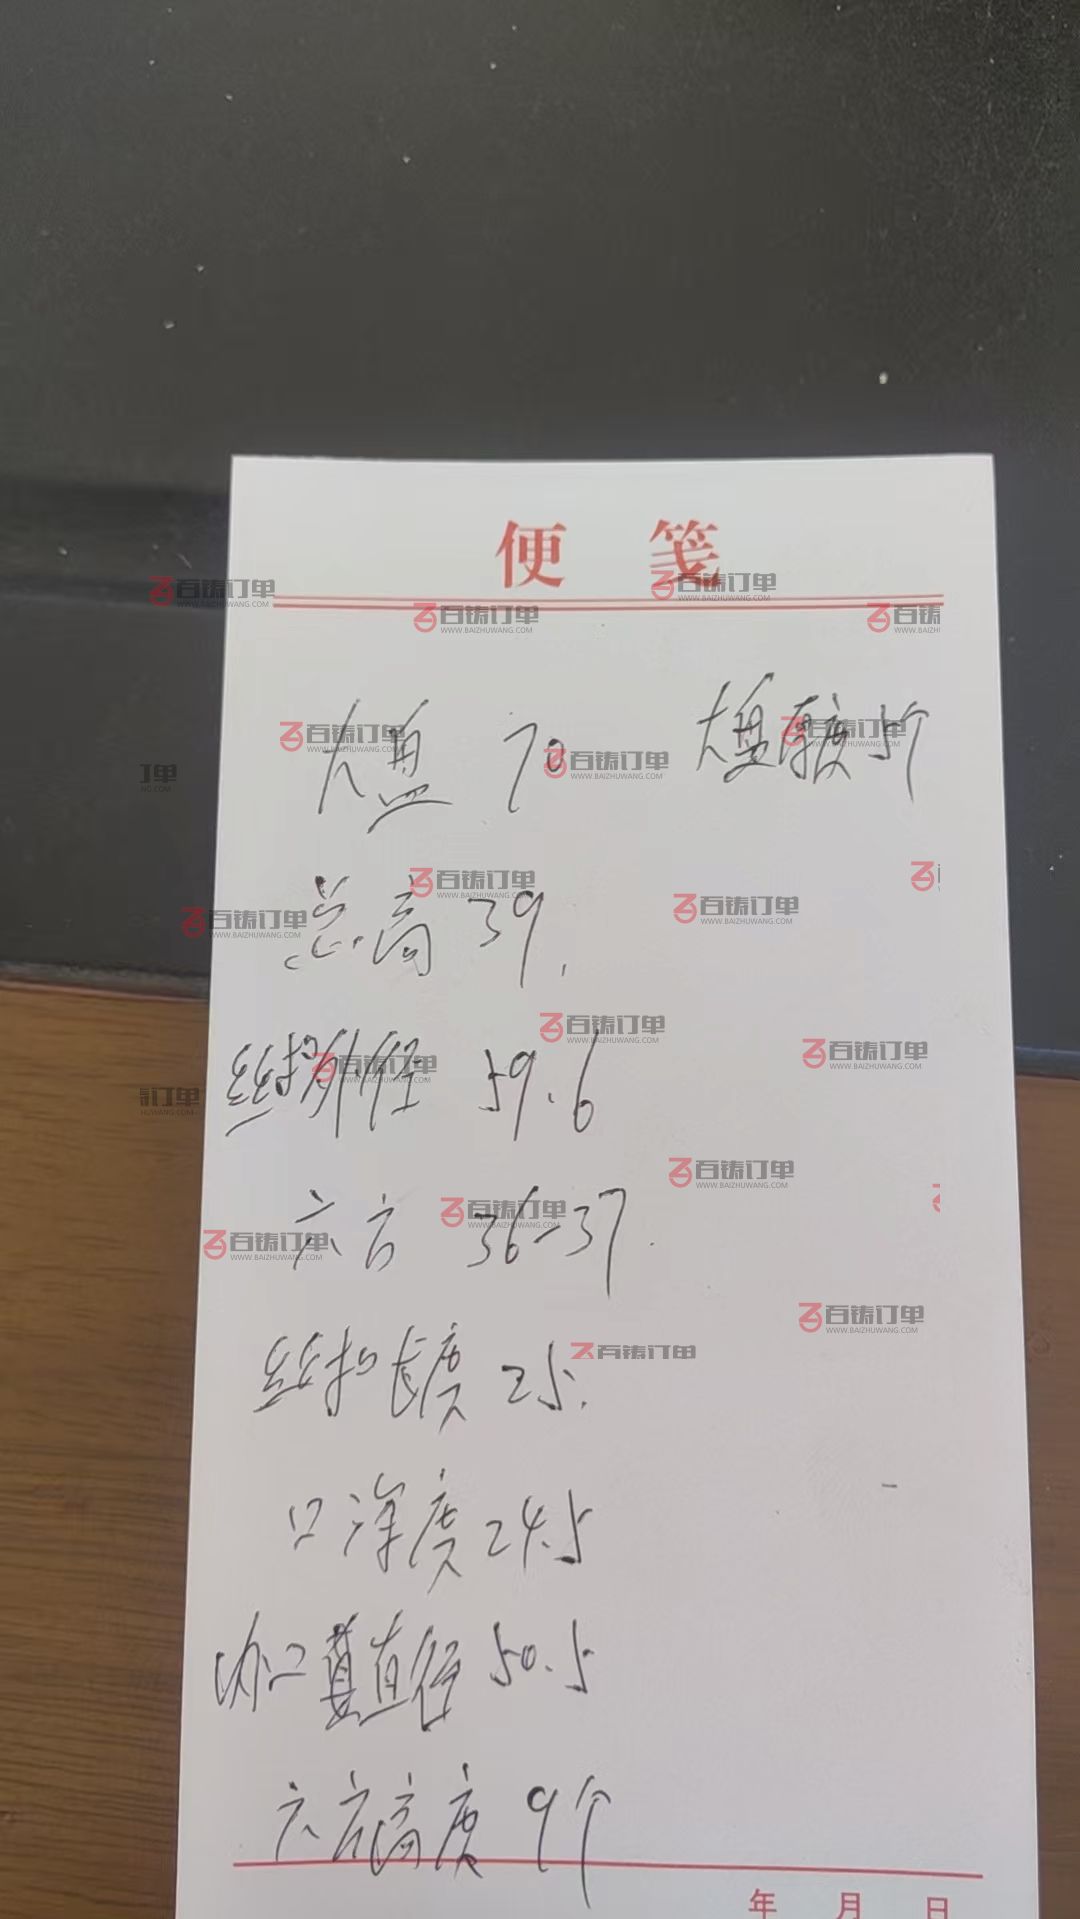 便 笺
大盘 70 大盘厚度 5个
总高 39.
丝扣外径 59.6
六方 36-37.
丝扣长度 25.
口深度 24.5
口直径 50.5
六方高度 9个
年 月 日
百铸订单
WWW.BAIZHUWANG.COM